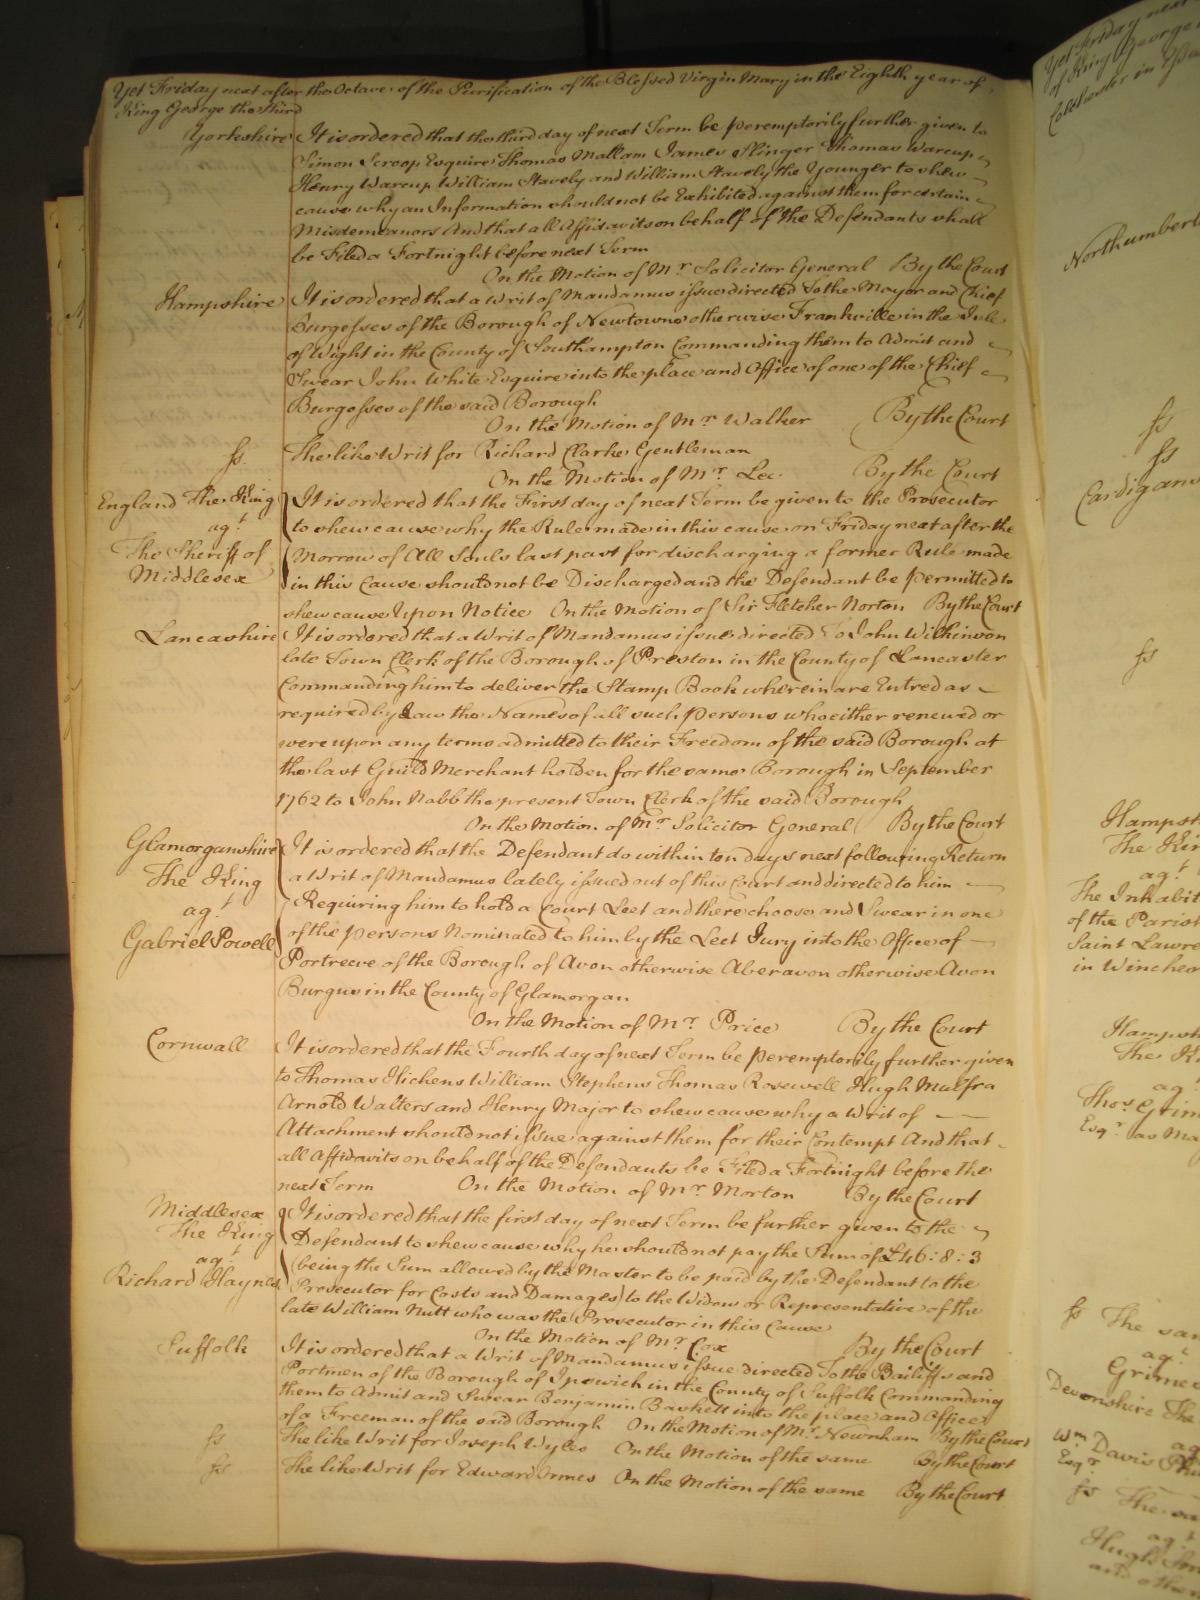 Yet Friday next after the Octave of the Purification of the Blessed Virgin Mary in the Eighth year of
King George the Third
Yorkshire It is ordered that the third day of next Term be peremptorily further given to
Simon Scroop Esquire Thomas Mallom James Slinger Thomas Warcup
Henry Warcup William Stavely and William Stavely the Younger to shew
cause why an Information should not be Exhibited against them for certain
Misdemeanors And that all Affidavits on behalf of the Defendants shall
be Filed a Fortnight before next Term
On the Motion of Mr Solicitor General By the Court
Hampshire It is ordered that a Writ of Mandamus issue directed To the Mayor and Chief
Burgesses of the Borough of Newtown otherwise Frankville in the Isle
of Wight in the County of Southampton Commanding them to Admit and
Swear John White Esquire into the place and Office of one of the Chief
Burgesses of the said Borough
On the Motion of Mr Walker By the Court
ss. The like Writ for Richard Clarke Gentleman
On the Motion of Mr Lee By the Court
England The King It is ordered that the First day of next Term be given to the Prosecutor
agt to shew cause why the Rule made in this cause on Friday next after the
The Sheriff of Morrow of All Souls last past for discharging a former Rule made
Middlesex in this Cause should not be Discharged and the Defendant be permitted to
shew cause Upon Notice On the Motion of Sir Fletcher Norton By the Court
Lancashire It is ordered that a Writ of Mandamus issue directed To John Wilkinson
late Town Clerk of the Borough of Preston in the County of Lancaster
Commanding him to deliver the Stamp Book wherein are Entred as
required by Law the Names of all such persons who either renewed or
were upon any terms admitted to their Freedom of the said Borough at
the last Guild Merchant holden for the same Borough in September
1762 to John Nabb the present Town Clerk of the said Borough
On the Motion of Mr Solicitor General By the Court
Glamorganshire It is ordered that the Defendant do within ten days next following Return
The King a Writ of Mandamus lately issued out of this Court and directed to him
agt Requiring him to hold a Court Leet and there choose and Swear in one
Gabriel Powell of the persons Nominated to him by the Leet Jury into the Office of
Portreeve of the Borough of Avon otherwise Aberavon otherwise Avon
Burgus in the County of Glamorgan
On the Motion of Mr Price By the Court
Cornwall It is ordered that the Fourth day of next Term be peremptorily further given
to Thomas Hichens William Stephens Thomas Rosewell Hugh Mulfra
Arnold Walters and Henry Major to shew cause why a Writ of
Attachment should not issue against them for their Contempt And that
all Affidavits on behalf of the Defendants be Filed a Fortnight before the
next Term On the Motion of Mr Morton By the Court
Middlesex It is ordered that the first day of next Term be further given to the
The King Defendant to shew cause why he should not pay the Sum of £46:8:3
agt (being the Sum allowed by the Master to be paid by the Defendant to the
Richard Haynes Prosecutor for Costs and Damages) to the Widow or Representative of the
late William Nutt who was the Prosecutor in this Cause
On the Motion of Mr Cox By the Court
Suffolk It is ordered that a Writ of Mandamus issue directed To the Bailiffs and
Portmen of the Borough of Ipswich in the County of Suffolk Commanding
them to Admit and Swear Benjamin Baskett into the place and Office
of a Freeman of the said Borough On the Motion of Mr Newnham By the Court
ss The like Writ for Joseph Wyles On the Motion of the same By the Court
ss The like Writ for Edward Ormes On the Motion of the same By the Court
Yet Friday next
of King George
Colchester in Essex
ss
ss
ss
The
agt
The Inhabit
of the Parish
Saint Lawre
in Winches
agt
Esqr as Ma
ss The sam
agt
Devonshire The
agt
Wm Davis
Esqr
ss The sa
agt
Hugh
and othe